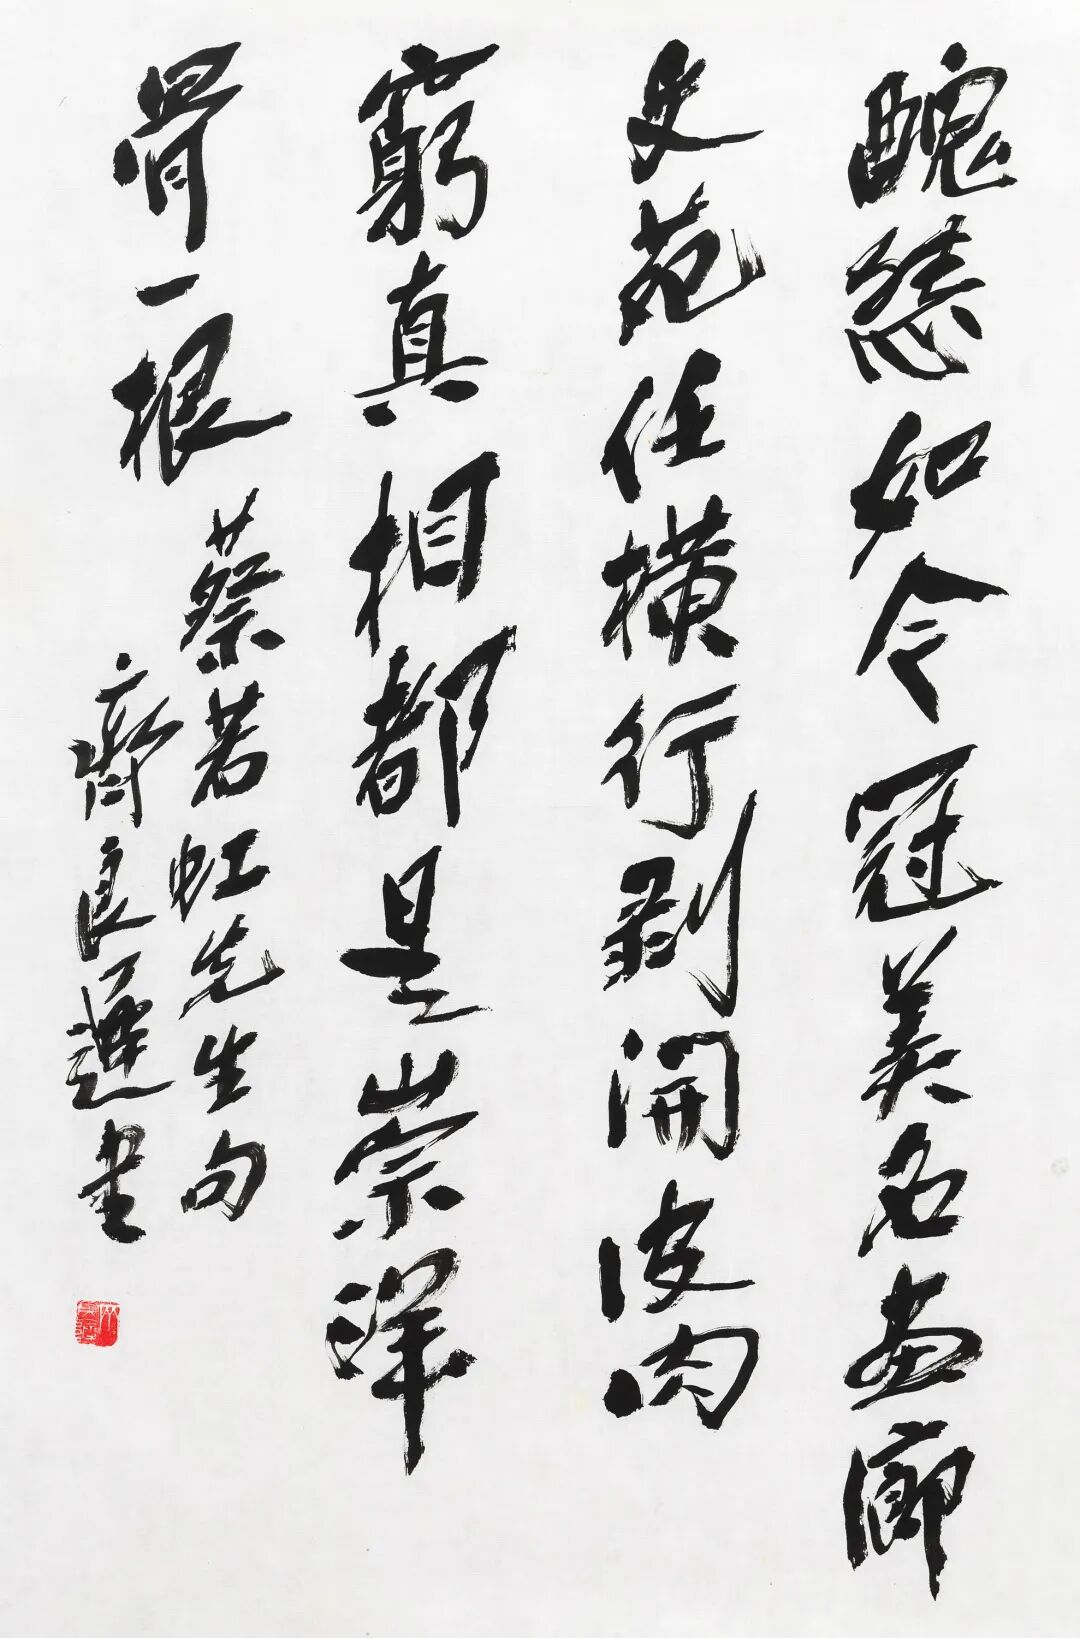 醜態如今冠美名畫廊
文苑任橫行剝開皮肉
窮真相都是崇洋
骨一根
蔡若虹先生句
齊良遲書